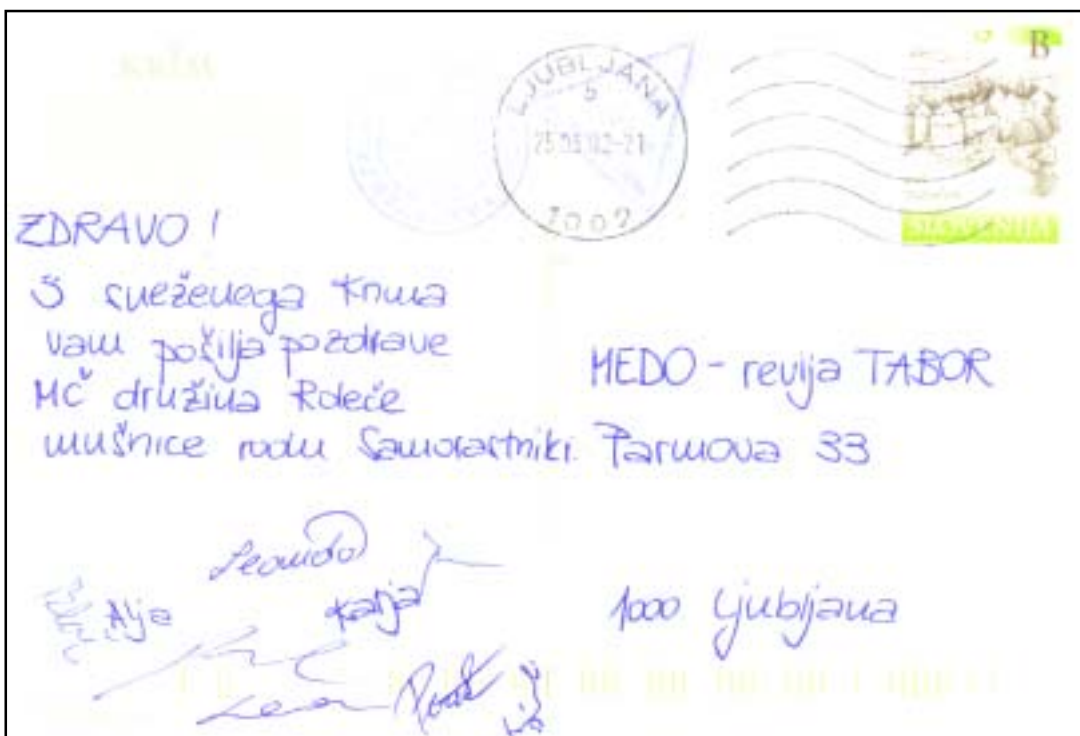 LJUBLJANA
5
1002
B
ZDRAVO !
S sveženega Krima
vam pošilja pozdrave
MČ družina Rdeče
mušnice rodu Samorastniki.
MEDO - revija TABOR
Parmova 33
1000 Ljubljana
Alja
Katja